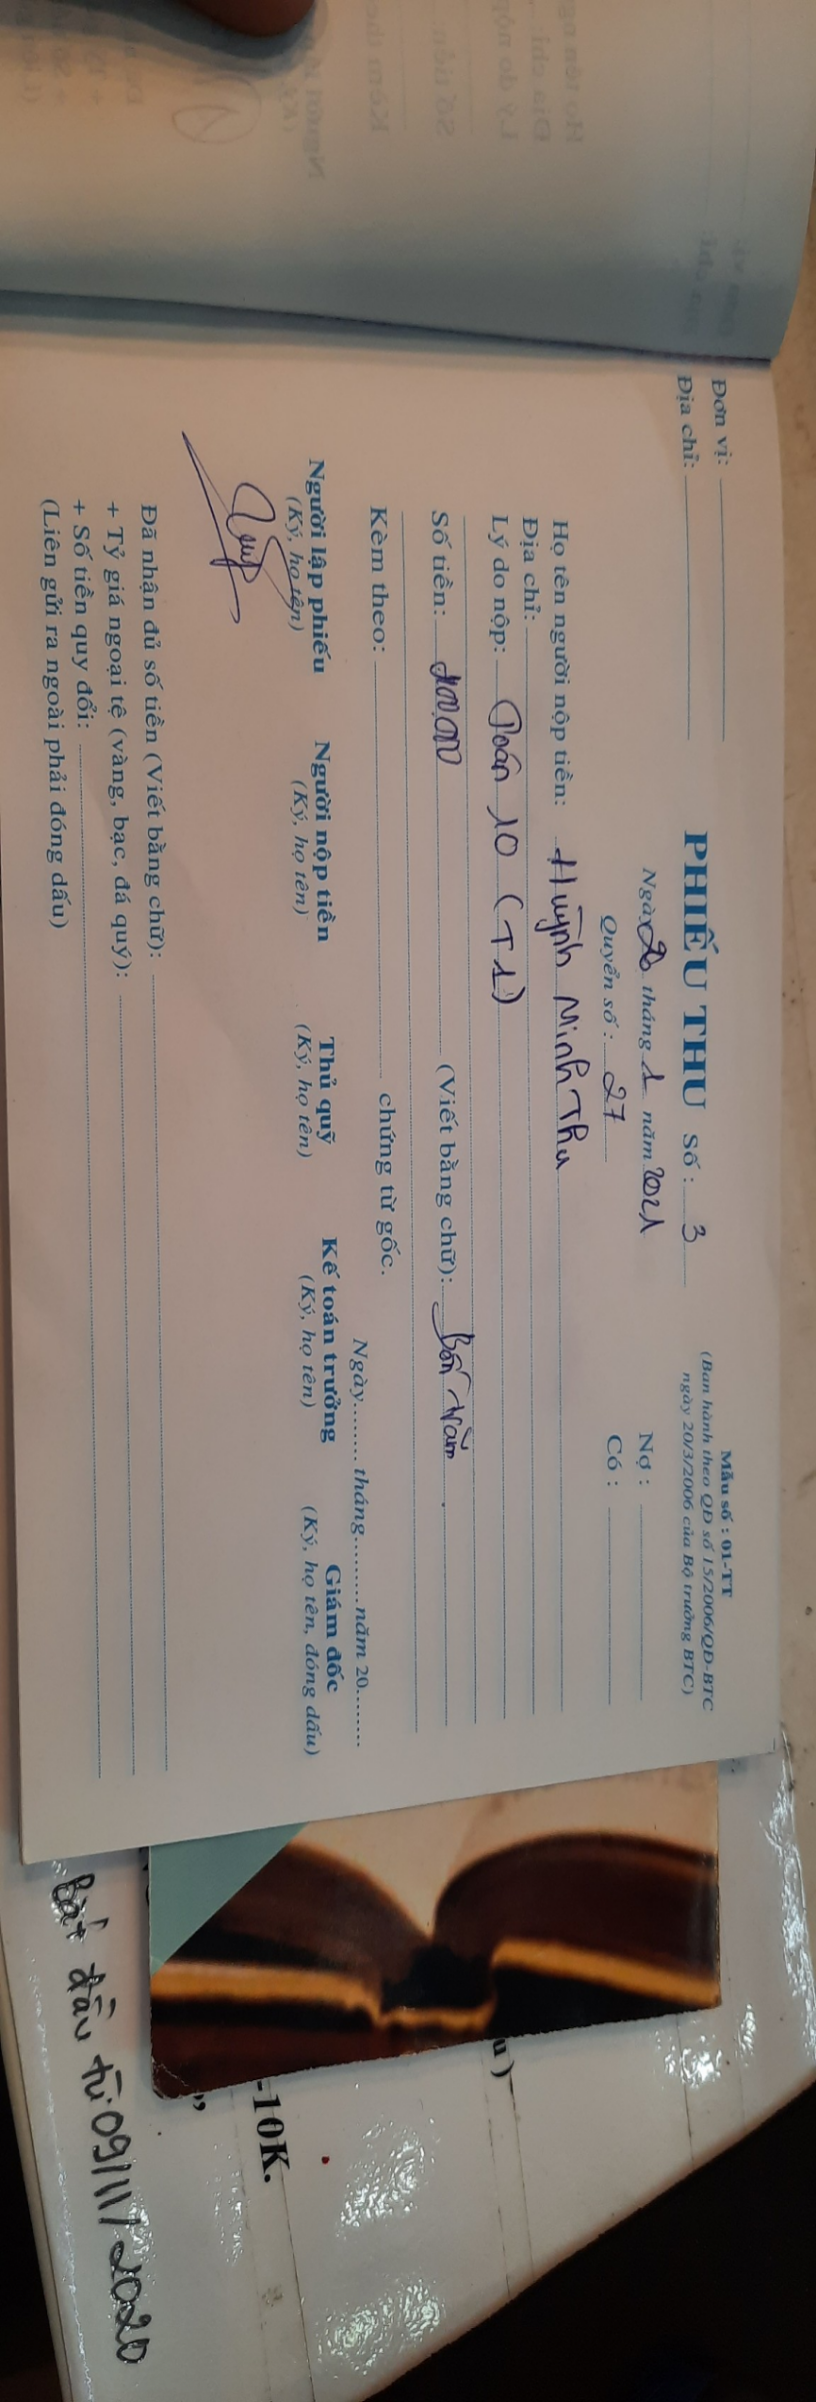 Đơn vị:
Địa chỉ:
Mẫu số : 01-TT
(Ban hành theo QĐ số 15/2006/QĐ-BTC
ngày 20/3/2006 của Bộ trưởng BTC)
PHIẾU THU Số : 3
Ngày 20 tháng 1 năm 2021
Quyển số : 27
Nợ :
Có :
Họ tên người nộp tiền: Huỳnh Minh Thu
Địa chỉ:
Lý do nộp: Toán 10 (T1)
Số tiền: 400.000 (Viết bằng chữ): Bốn trăm
Kèm theo: chứng từ gốc.
Ngày........ tháng........ năm 20.......
Người lập phiếu Người nộp tiền Thủ quỹ Kế toán trưởng Giám đốc
(Ký, họ tên) (Ký, họ tên) (Ký, họ tên) (Ký, họ tên) (Ký, họ tên, đóng dấu)
Đã nhận đủ số tiền (Viết bằng chữ):
+ Tỷ giá ngoại tệ (vàng, bạc, đá quý):
+ Số tiền quy đổi:
(Liên gửi ra ngoài phải đóng dấu)
-10K.
Bắt đầu từ 09/11/2020